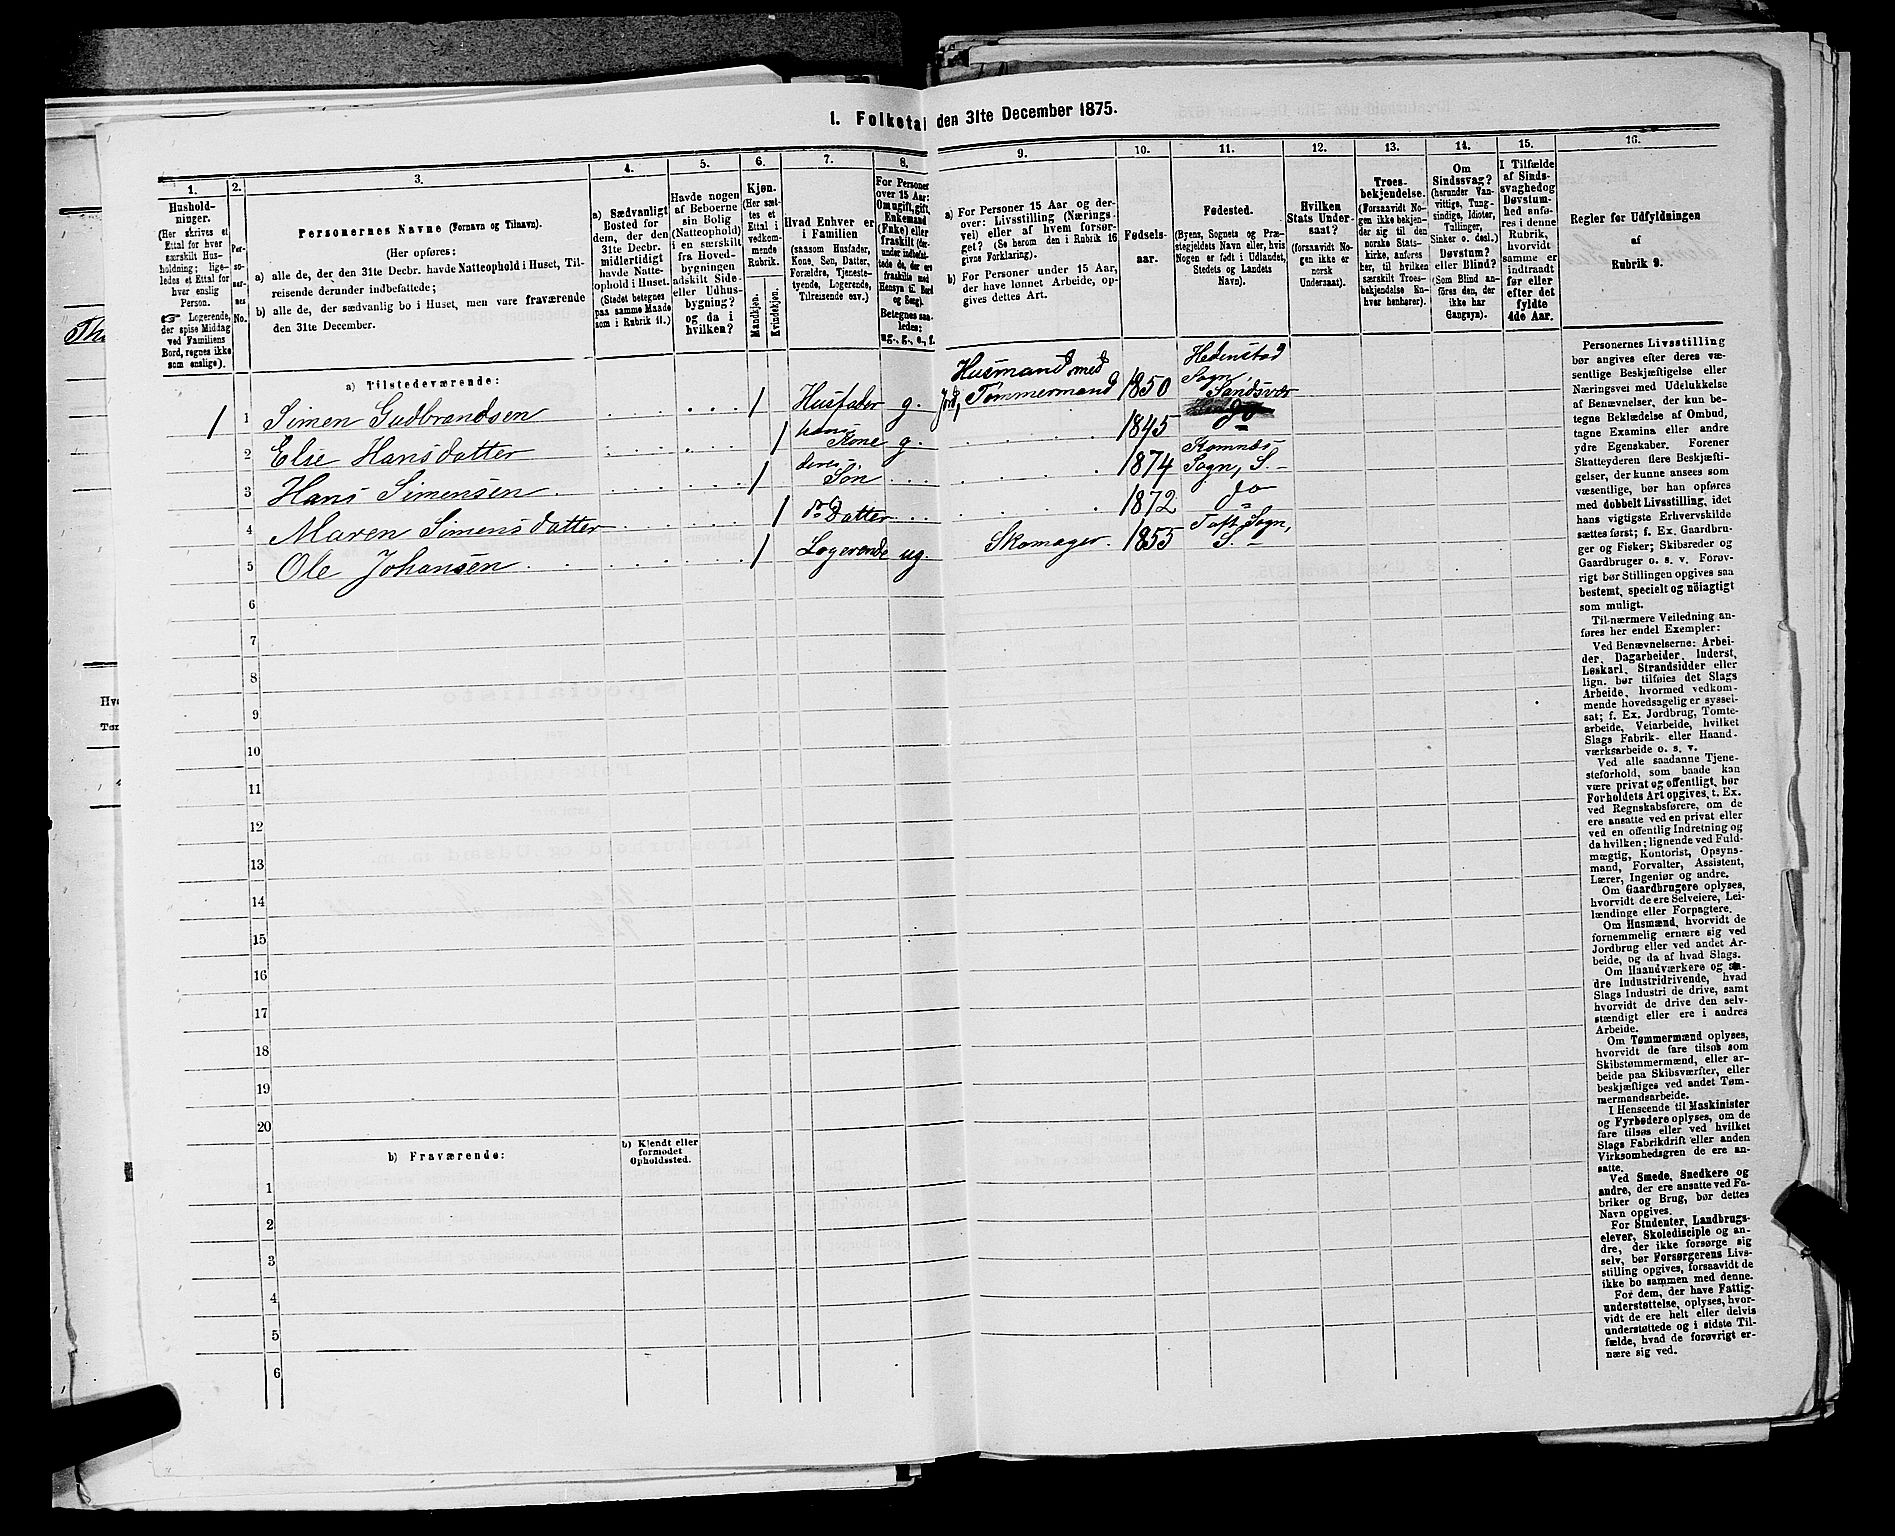 1. Folketal den 31te December 1875.
1. 2. 3. 4. 5. 6. 7. 8. 9. 10. 11. 12. 13. 14. 15. 16.
Hushold-
ninger.
(Her skrives et
Ettal for hver
særskilt Hus-
holdning; lige-
ledes et Ettal for
hver enslig
Person.
☞ Logerende,
der spise Middag
ved Familiens
Bord, regnes ikke
som enslige).
Per-
so-
ner-
nes
No.
Personernes Navne (Fornavn og Tilnavn).
(Her opføres:
a) alle de, der den 31te Decbr. havde Natteophold i Huset, Til-
reisende derunder indbefattede;
b) alle de, der sædvanlig bo i Huset, men vare fraværende
den 31te December.
a) Sædvanligt
Bosted for
dem, der den
31te Decbr.
midlertidigt
havde Natte-
ophold i Huset.
(Stedet betegnes
paa samme Maade
som i Rubrik 11.)
Havde nogen
af Beboerne
sin Bolig
(Natteophold)
i en særskilt
fra Hoved-
bygningen
adskilt Side-
eller Udhus-
bygning?
og da i
hvilken?
Kjøn.
(Her sæt-
tes et
Ettal i
vedkom-
mende
Rubrik.
Mandkjøn.
Kvindekjøn.
Hvad Enhver er
i Familien
(saasom Husfader,
Kone, Søn, Datter,
Forældre, Tjeneste-
tyende, Logerende,
Tilreisende osv.)
For Personer
over 15 Aar:
Om ugift, gift,
Enkemand
(Enke) eller
fraskilt (der-
under indbefat-
tede de, der ere
fraskilte med
Hensyn til Bord
og Seng).
Betegnes saa-
ledes:
ug., g., e., f.
a) For Personer 15 Aar og der-
over: Livsstilling (Nærings-
vei) eller af hvem forsør-
get? (Se herom den i Rubrik 16
givne Forklaring).
b) For Personer under 15 Aar,
der have lønnet Arbeide, op-
gives dettes Art.
Fødsels-
aar.
Fødested.
(Byens, Sognets og Præ-
stegjeldets Navn eller, hvis
Nogen er født i Udlandet,
Stedets og Landets
Navn).
Hvilken
Stats Under-
saat?
(forsaavidt No-
gen ikke er
norsk
Undersaat).
Troes-
bekjendelse.
(Forsaavidt No-
gen ikke bekjen-
der sig til den
norske Stats-
kirke, anføres
her, til hvilken
særskilt Troes-
bekjendelse En-
hver henhører).
Om
Sindssvag?
(herunder Van-
vittige, Tung-
sindige, Idioter,
Tullinger,
Sinker o. desl.)
Døvstum?
eller Blind?
(Som Blind an-
føres den, der
ikke har
Gangsyn).
I Tilfælde
af Sinds-
svaghed og
Døvstum-
hed anfø-
res i denne
Rubrik,
hvorvidt
samme er
indtraadt
før eller
efter det
fyldte
4de Aar.
Regler for Udfyldningen
af
Rubrik 9.
a) Tilstedeværende:
1 1 Simen Gudbrandsen 1 Husfader g. Husmand med Jord, Tømmermand 1850 Hedenstad Sogn, Sandsvær
2 Else Hansdatter 1 hans Kone g. 1845 do
3 Hans Simensen 1 deres Søn 1874 Komnæs Sogn, S.
4 Maren Simensdatter 1 do Datter 1872 do
5 Ole Johansen 1 Logerende ug. Skomager. 1855 Tuft Sogn, S.
6
7
8
9
10
11
12
13
14
15
16
17
18
19
20
b) Fraværende:
b) Kjendt eller
formodet
Opholdssted.
1
2
3
4
5
6
Personernes Livsstilling
bør angives efter deres væ-
sentlige Beskjæftigelse eller
Næringsvei med Udelukkelse
af Benævnelser, der kun be-
tegne Beklædelse af Ombud,
tagne Examina eller andre
ydre Egenskaber. Forener
Skatteyderen flere Beskjæfti-
gelser, der kunne ansees som
væsentlige, bør han opføres
med dobbelt Livsstilling, idet
hans vigtigste Erhvervskilde
sættes først; f. Ex. Gaardbru-
ger og Fisker; Skibsreder og
Gaardbruger o. s. v. Forøv-
rigt bør Stillingen opgives saa
bestemt, specielt og nøiagtigt
som muligt.
Til nærmere Veiledning an-
føres her endel Exempler:
Ved Benævnelserne: Arbei-
der, Dagarbeider, Inderst,
Løskarl, Strandsidder eller
lign. bør tilføies det Slags
Arbeide, hvormed vedkom-
mende hovedsagelig er syssel-
sat; f. Ex. Jordbrug, Tomte-
arbeide, Veiarbeide, hvilket
Slags Fabrik- eller Haand-
værksarbeide o. s. v.
Ved alle saadanne Tjene-
steforhold, som baade kan
være privat og offentligt, bør
Forholdets Art opgives, t. Ex.
ved Regnskabsførere, om de
ere ansatte ved en privat eller
ved en offentlig Indretning og
da hvilken; lignende ved Fuld-
mægtig, Kontorist, Opsyns-
mand, Forvalter, Assistent,
Lærer, Ingeniør og andre.
Om Gaardbrugere oplyses,
hvorvidt de ere Selveiere, Lei-
lændinge eller Forpagtere.
Om Husmænd, hvorvidt de
fornemmelig ernære sig ved
Jordbrug eller ved andet Ar-
beide, og da af hvad Slags.
Om Haandværkere og an-
dre Industridrivende, hvad
Slags Industri de drive, samt
hvorvidt de drive den selv-
stændigt eller ere i andres
Arbeide.
Om Tømmermænd oplyses,
hvorvidt de fare tilsøs som
Skibstømmermænd, eller ar-
beide paa Skibsværfter, eller
beskjæftiges ved andet Tøm-
mermandsarbeide.
I Henseende til Maskinister
og Fyrbødere oplyses, om de
fare tilsøs eller ved hvilket
Slags Fabrikdrift eller anden
Virksomhedsgren de ere an-
satte.
Ved Smede, Snedkere og
andre, der ere ansatte ved Fa-
briker og Brug, bør dettes
Navn opgives.
For Studenter, Landbrugs-
elever, Skoledisciple og an-
dre, der ikke forsørge sig
selv, bør Forsørgerens Livs-
stilling opgives, forsaavidt de
ikke bo sammen med denne.
For dem, der have Fattig-
understøttelse, oplyses, hvor-
vidt de ere helt eller delvis
understøttede og i sidste Til-
fælde, hvad de forøvrigt er-
nære sig ved.